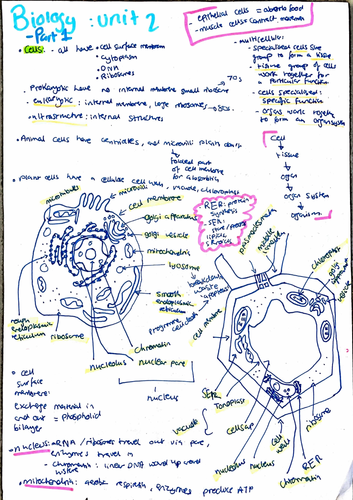 Biology : unit 2
- Part 1
- epithelial cells = absorb food
- muscle cells = contract
• Cells: - all have • cell surface membrane
• cytoplasm
• DNA
• Ribosomes
- Prokaryotic have no internal membrane small ribosome → 70s
- Eukaryotic : internal membrane, large ribosomes → 80s
• ultrastructure : internal structures
multicellular:
• specialised cells
group to form a tissue
• tissue group of cells
work together for
particular function
• cells specialised:
specific function
• organs work together
to form an organ system
Cell
↓
tissue
↓
organ
↓
organ system
↓
organism
• Animal cells have centrioles, and microvilli plants don't
↓
folded part
of cell membrane
for absorption
• plant cells have a cellulose cell wall, vacuole, chloroplasts
RER: protein
synthesis
SER:
lipids
microvilli
cell membrane
golgi apparatus
golgi vesicle
mitochondria
lysosome
breakdown
waste
apoptosis
programme
cell death
smooth
endoplasmic
reticulum
rough
endoplasmic
reticulum
ribosome
Chromatin
nucleolus
nuclear pore
nucleus
plasmodesmata
middle
lamella
chloroplast
golgi
apparatus
vesicle
cell membrane
SER
Tonoplast
vacuole
cell sap
nucleolus
nucleus
cell
wall
ribosome
RER
chromatin
• cell
surface
membrane:
exchange material in
and out = phospholipid
bilayer
• nucleus: mRNA / ribosomes travel out via pore,
enzymes travel in
- chromatin: linear DNA wound up around
• mitochondria: aerobic respiration, enzymes produce ATP